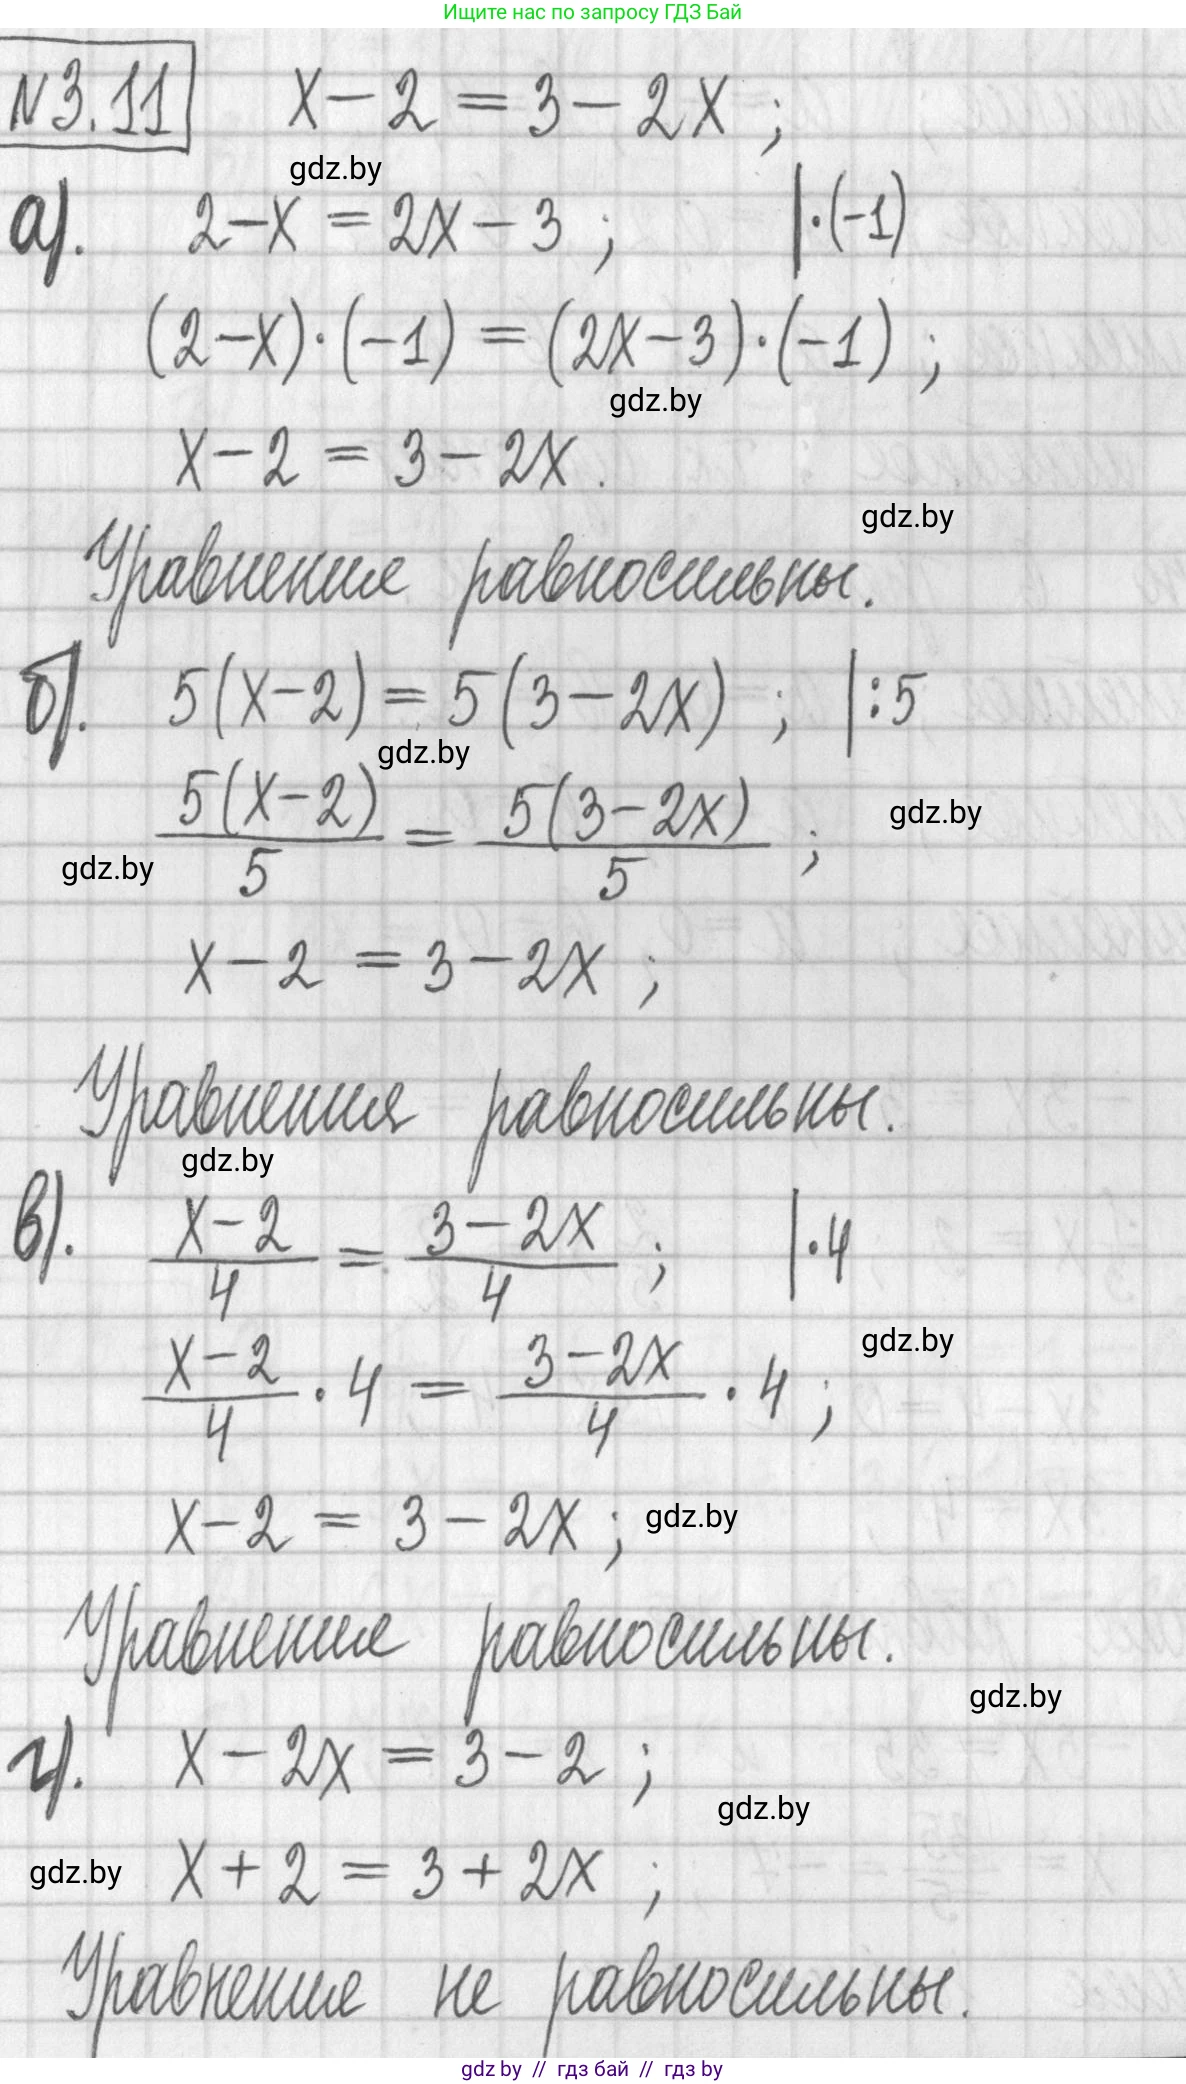 Ищите нас по запросу ГДЗ Бай
N3.11 x - 2 = 3 - 2x ;
gdz.by
а). 2 - x = 2x - 3 ; | · (-1)
(2 - x) · (-1) = (2x - 3) · (-1) ;
gdz.by
x - 2 = 3 - 2x .
gdz.by
Уравнение равносильны.
б). 5(x - 2) = 5(3 - 2x) ; | : 5
gdz.by
5(x - 2)/5 = 5(3 - 2x)/5 ;
gdz.by
gdz.by
x - 2 = 3 - 2x ;
Уравнения равносильны.
gdz.by
в). x - 2/4 = 3 - 2x/4 ; | · 4
x - 2/4 · 4 = 3 - 2x/4 · 4 ;
gdz.by
x - 2 = 3 - 2x ;
gdz.by
Уравнение равносильны.
gdz.by
г). x - 2x = 3 - 2 ;
gdz.by
gdz.by
x + 2 = 3 + 2x ;
Уравнение не равносильны.
gdz by // гдз бай // гдз by